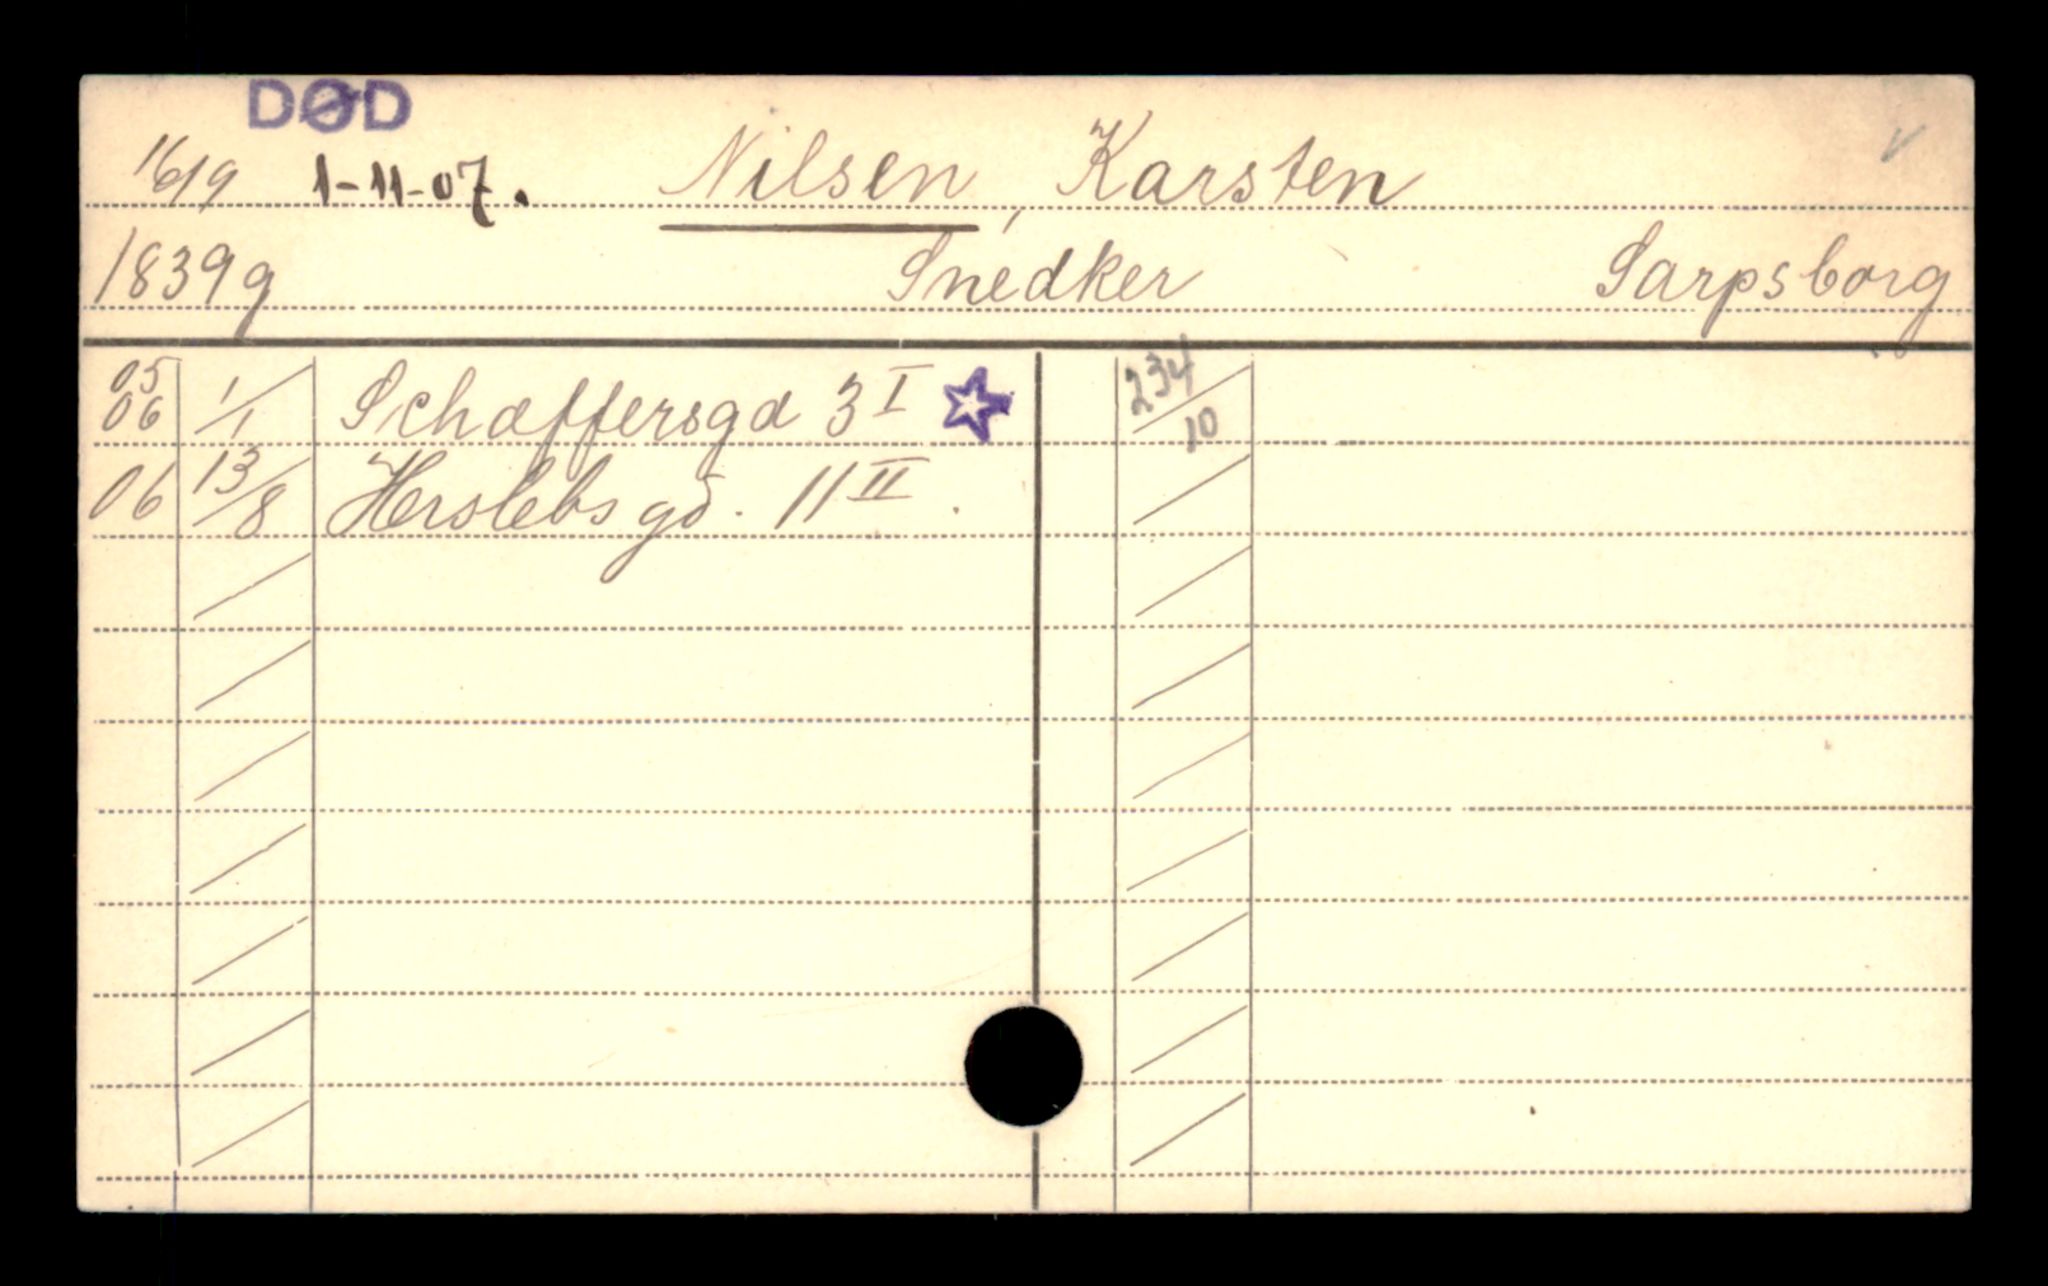 DØD
16/9 1-11-07. Nilsen, Karsten
1839 g Snedker Sarpsborg
05
06 1/1 Schaffersgd 3 I 234/10
06 13/8 Herslebsgd. 11 II.